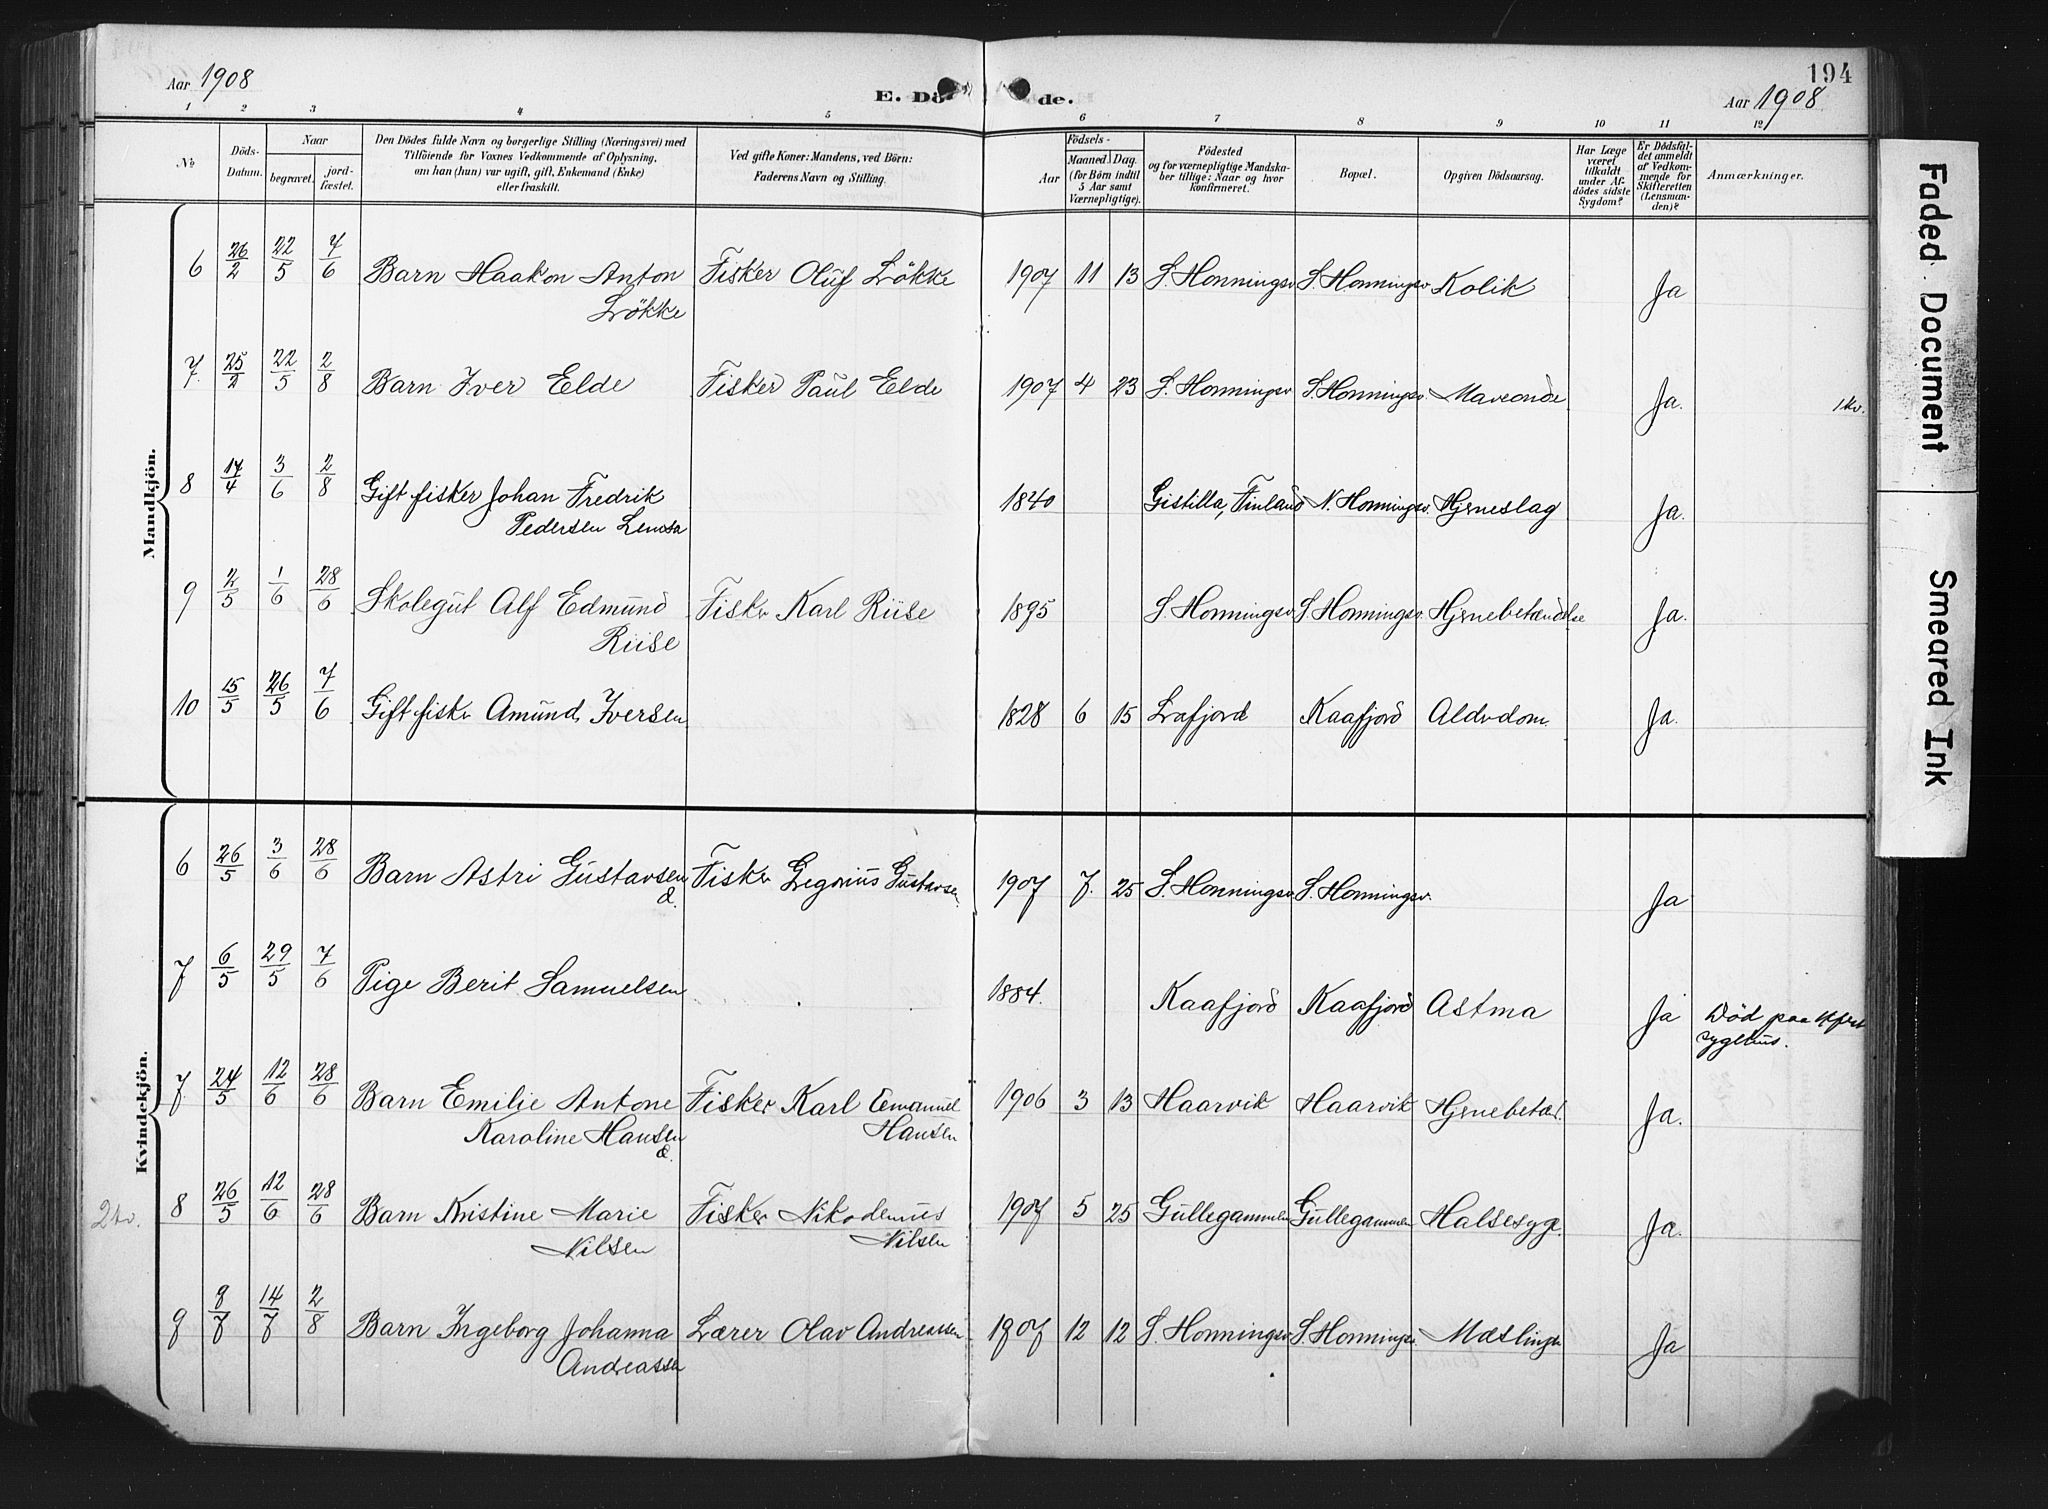 Aar 1908
E. Dö de.
194
Aar 1908
1 2 3 4 5 6 7 8 9 10 11 12
No
Döds-
Datum.
Naar
begravet.
jord-
fæstet.
Den Dödes fulde Navn og borgerlige Stilling (Næringsvei) med
Tilföiende for Voxnes Vedkommende af Oplysning,
om han (hun) var ugift, gift, Enkemand (Enke)
eller fraskilt.
Ved gifte Koner: Mandens, ved Börn:
Faderens Navn og Stilling.
Födsels-
Aar
Maaned. Dag.
(for Börn indtil
5 Aar samt
Værnepligtige).
Födested
og for værnepligtige Mandska-
ber tillige: Naar og hvor
konfirmeret.
Bopæl.
Opgiven Dödsaarsag.
Har Læge
været
tilkaldt
under Af-
dödes sidste
Sygdom?
Er Dödsfal-
det anmeldt
af Vedkom-
mende for
Skifteretten
(Lensman-
den)?
Anmærkninger.
Mandkjön.
6 26/2 22/5 7/6 Barn Haakon Anton Fisker Oluf Lökke 1907 11 13 S. Honningsv. S. Honningsv. Kolik Ja
Lökke
7. 25/2 22/5 2/8 Barn Iver Elde Fisker Paul Elde 1907 4 23 S. Honningsv. S. Honningsv. Ja. 1 kv.
8 17/4 3/6 2/8 Gift fisker Johan Fredrik 1840 Gistilla, Finland N. Honningsv. Hjerneslag Ja.
Pedersen
9 2/5 1/6 28/6 Skolegut Alf Edmund Fisker Karl Riise 1895 S. Honningsv. S. Honningsv. Hjernebetændelse Ja.
Riise
10 15/5 26/5 7/6 Gift fisker Amund Iversen 1828 6 15 Lafjord Kaafjord Alderdom. Ja.
Kvindekjön.
6 26/5 3/6 28/6 Barn Astri Gustavsen Fisker Gustavsen 1907 7. 25 S. Honningsv. S. Honningsv. Ja
d.
7 6/5 29/5 7/6 Pige Berit Samuelsen 1884. Kaafjord Kaafjord Astma Ja Död paa
sygehus.
7. 24/5 12/6 28/6 Barn Emilie Antone Fisker Karl Emanuel 1906 3 13 Haarvik Haarvik Hjernebetæd. Ja.
Karoline Hansen Hansen
d.
2 kv. 8 26/5 12/6 28/6 Barn Kristine Marie Fisker Nikodemus 1907 5 25 Gullegammen Gullegammen Halsesyge. Ja.
Nilsen Nilsen
9 8/7 14/7 2/8 Barn Ingeborg Johanna Lærer Olav Andreassen 1907 12 12 S. Honningsv. S. Honningsv. Mæslinger Ja
Andreassen
Faded Document
Smeared Ink